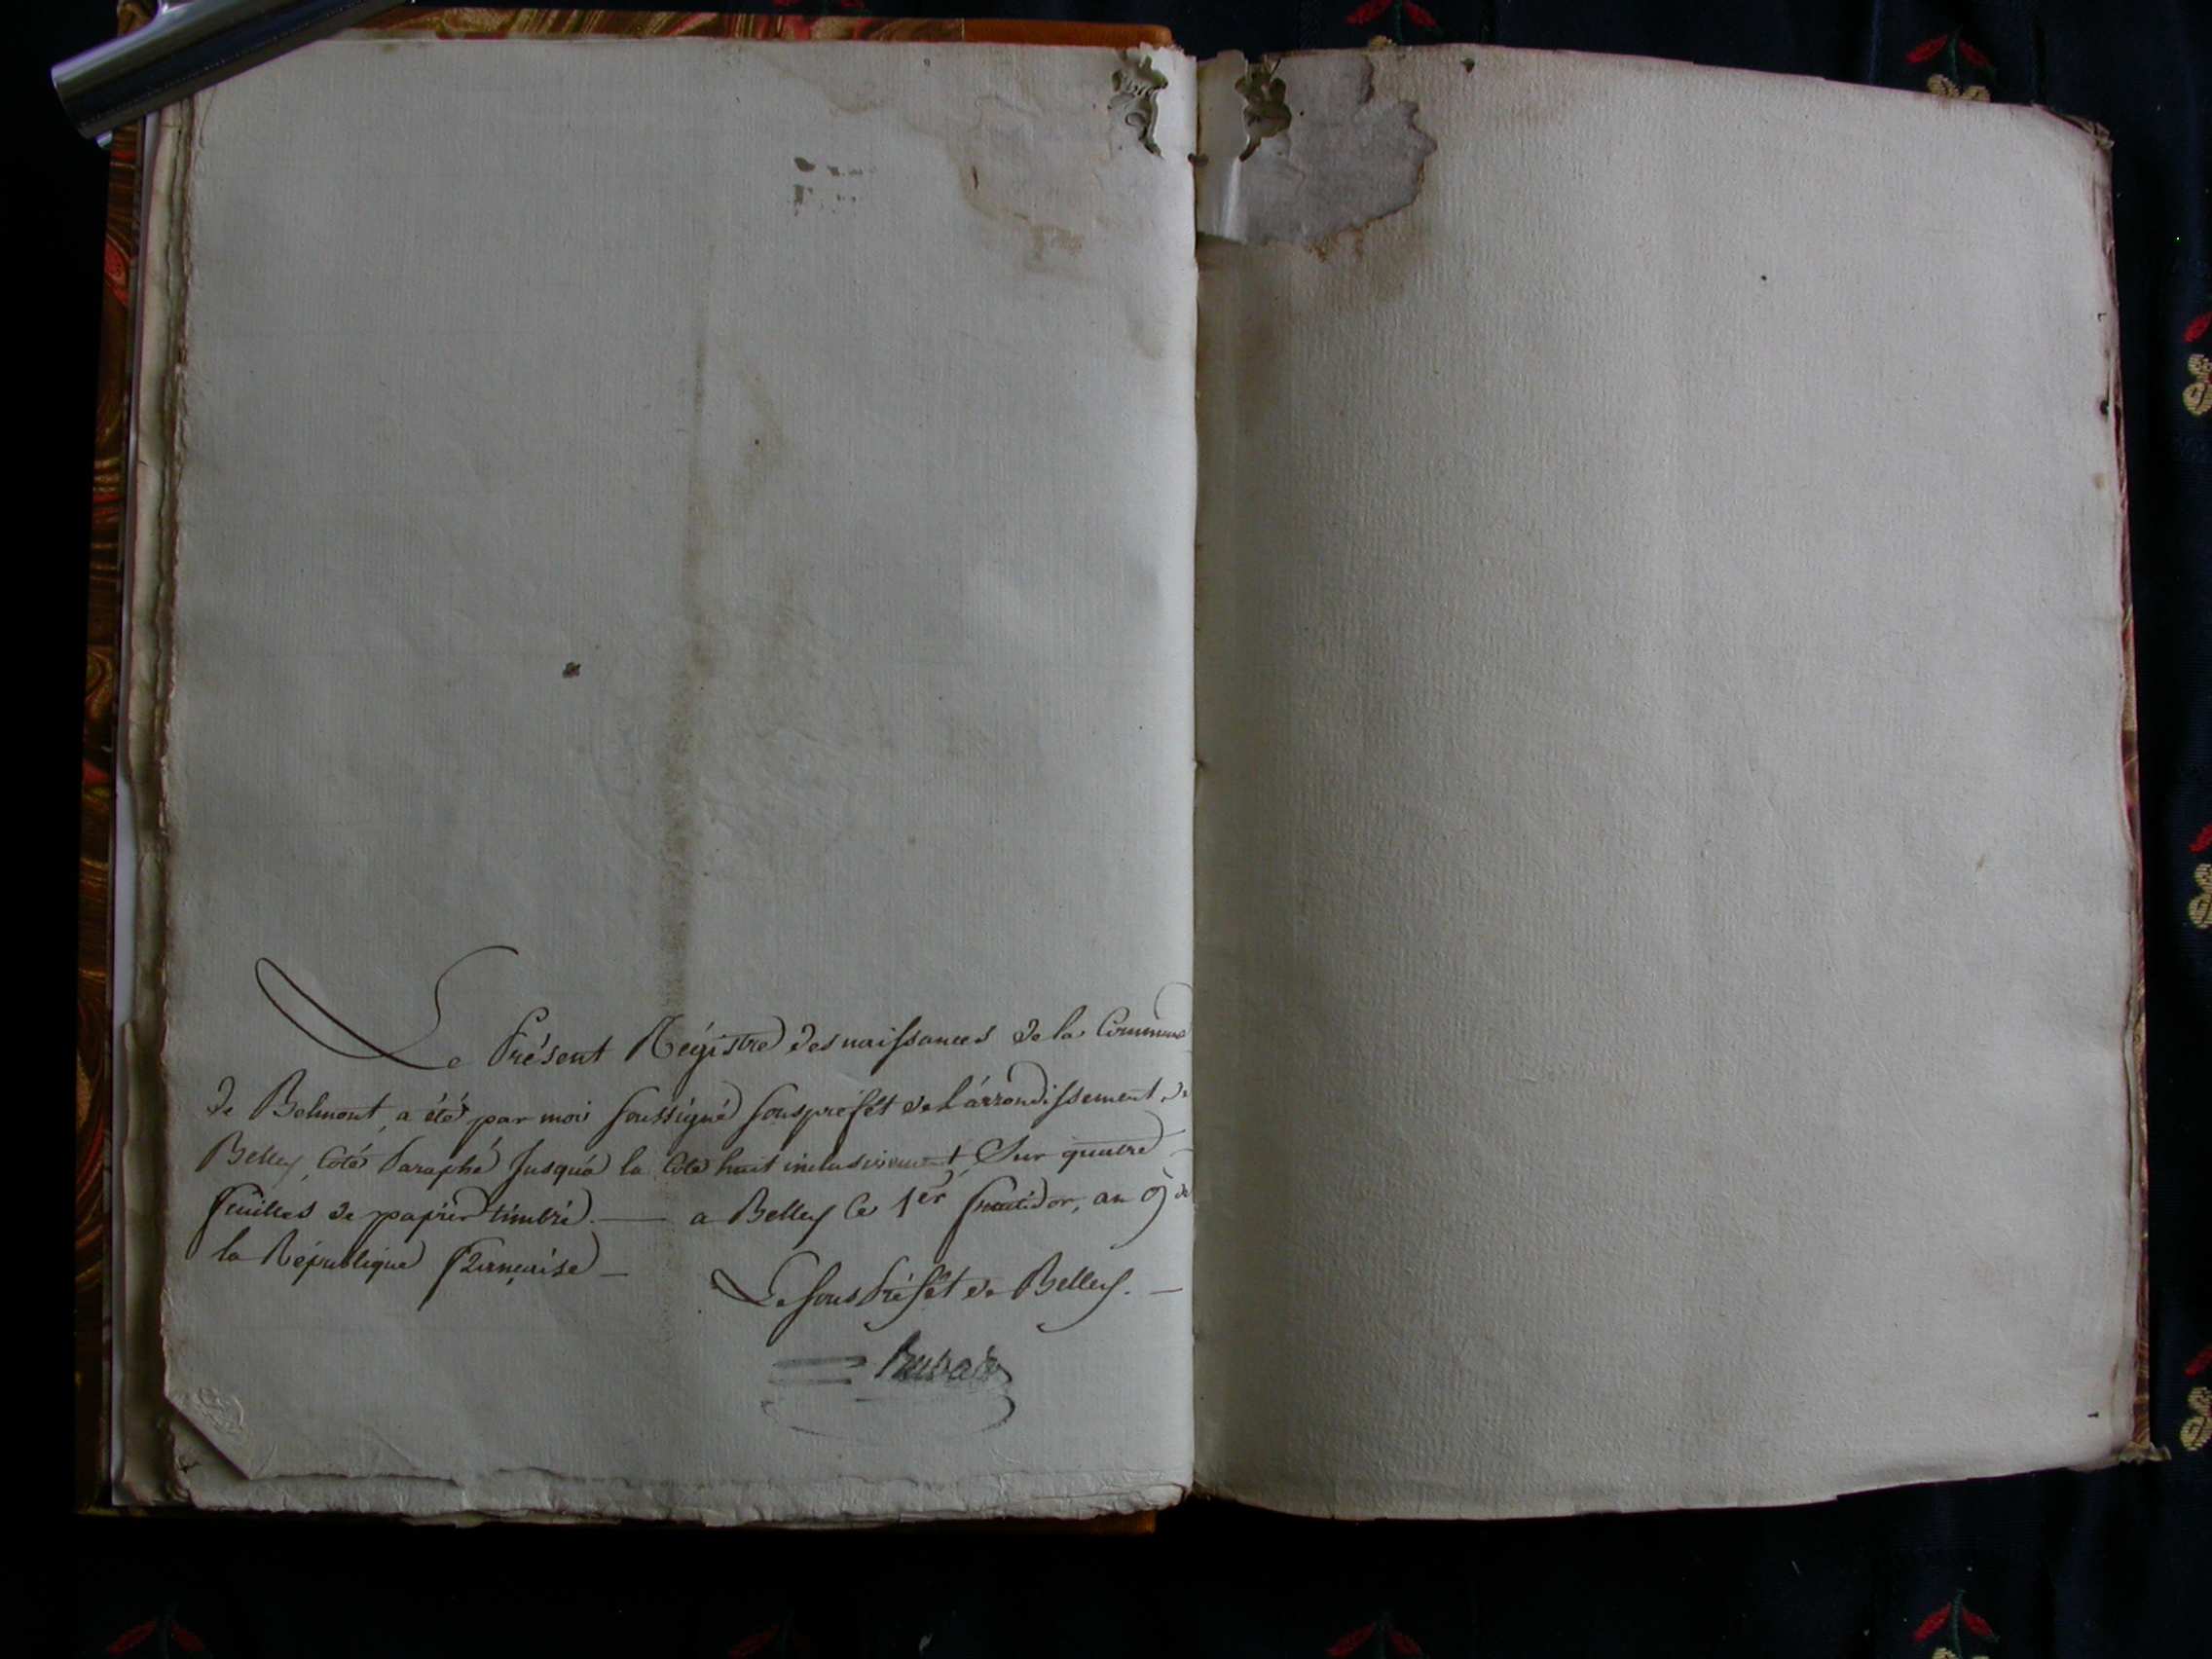 Le Présent Régistre des naissances de la Commune
de Belmont, a été par moi soussigné souspréfét de L'árrondissement de
Belley, Coté Paraphé Jusqu'a la Cote huit inclusivement, Sur quatre
feuilles de papier timbré. — a Belley le 1er fructidor, an 9 de
la République française —
Le sous Préfét de Belley. —